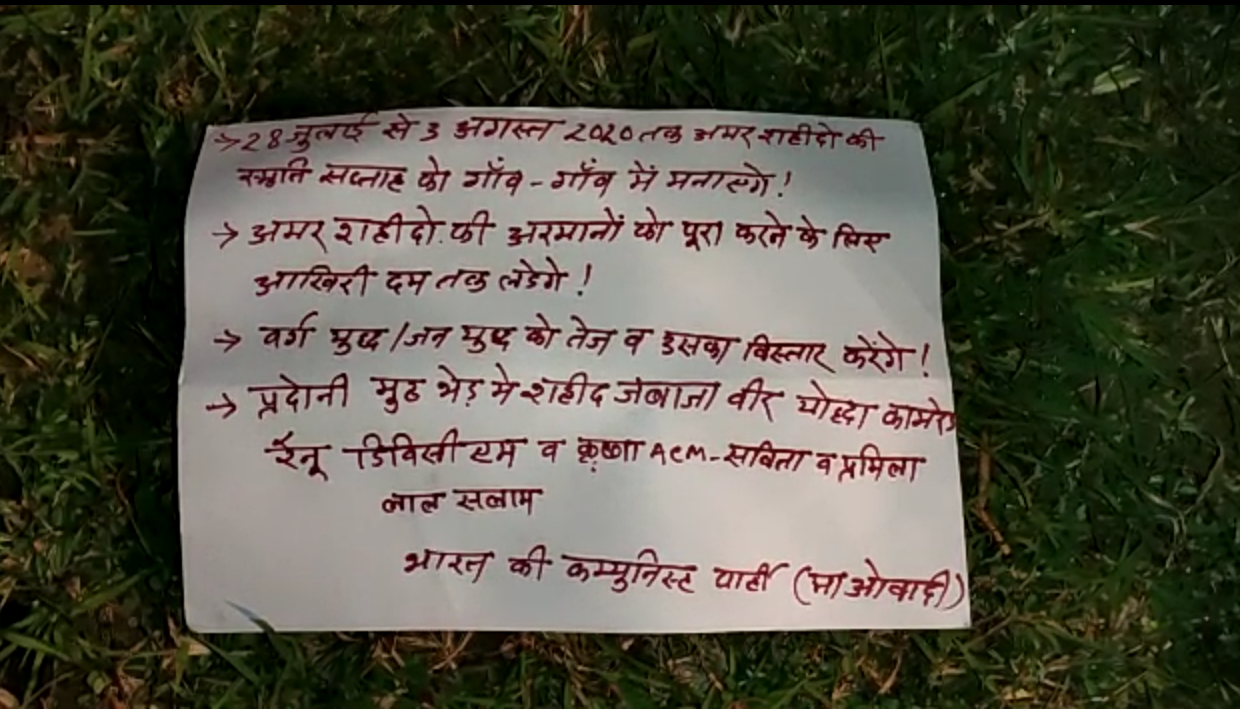 → 28 जुलाई से 3 अगस्त 2020 तक अमर शहीदो की
स्मृति सप्ताह को गाँव - गाँव में मनाएगे !
→ अमर शहीदो की अरमानों को पूरा करने के लिए
आखिरी दम तक लडेगे !
→ वर्ग युद्ध / जन युद्ध को तेज व उसका विस्तार करेंगे !
→ मुठ भेड़ मे शहीद जबाजा वीर योद्धा
रेनू डिविसी एम व कृष्णा ACM - सविता व प्रमिला
लाल सलाम
भारत की कम्मुनिस्ट पार्टी (माओवादी)